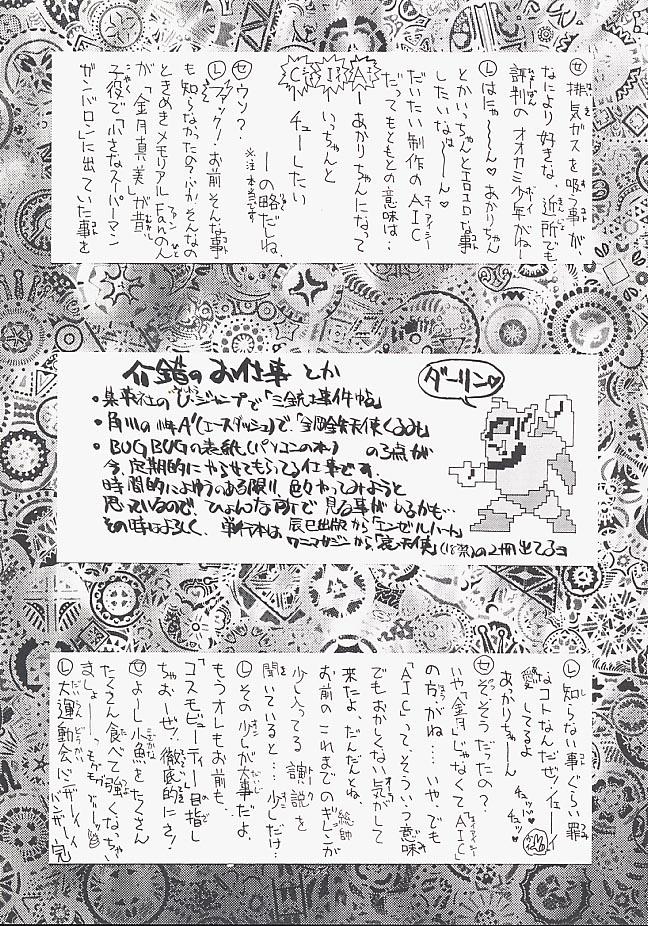 セ 排気ガスを吸う事が、
なにより好きな、近所でも
評判のオオカミ少年がねー
L はにゃ〜〜ん♡ あかりちゃん
とかいっちゃんとエロエロな事
したいなぁ〜〜ん♡
だいたい制作のAIC
だってもともとの意味は…
A ーあかりちゃんになって
I ーいっちゃんと
C ーチューしたい
ーの略だしね。
※注 本当です
セ ウソ?
L ファック! お前そんな事
も知らなかったの?
ときめきメモリアルFanの人
が「金月真美」が昔
子役で「小さなスーパーマン
ガンバロン」に出ていた事を
介錯のお仕事とか
・集英社のVジャンプで「三銃士事件帖」
・角川の少年A'(エースダッシュ)で、「鋼鉄天使くるみ」
・BUG BUGの表紙(パソコンの本) の3点が
今、定期的にやらせてもらってる仕事です。
時間的によゆうのある限り、色々やってみようと
思っているので、ひょんな所で見る事があるかも…
その時はよろしく、単行本は 辰巳出版から「エンゼルハート」
ワニマガジンから
(18禁)の2冊出てるヨ
ダーリン♡
L 知らない事ぐらい罪
なコトなんだぜ!イェーイ
愛してるよ
あっかりちゃーん チュッ♡チュッ♡
セ ぞっそうだったの?
いや「金月」じゃなくて「AIC」
の方がね…いや、でも
「AIC」って、そういう意味
でもおかしくない気がして
来たよ、だんだんとね
お前のこれまでのギレン総帥が
少し入ってる演説を
聞いていると…少しだけ…
L その少しが大事だよ、
もうオレもお前も、
「コスモビューティー」目指し
ちゃおーぜ!徹底的にさ!
セ よーし小魚をたくさん
たくさん食べて強くなっちゃい
ましょーーっ モグモグ
L 大運動会バンザーーイ
バンザーイ 完